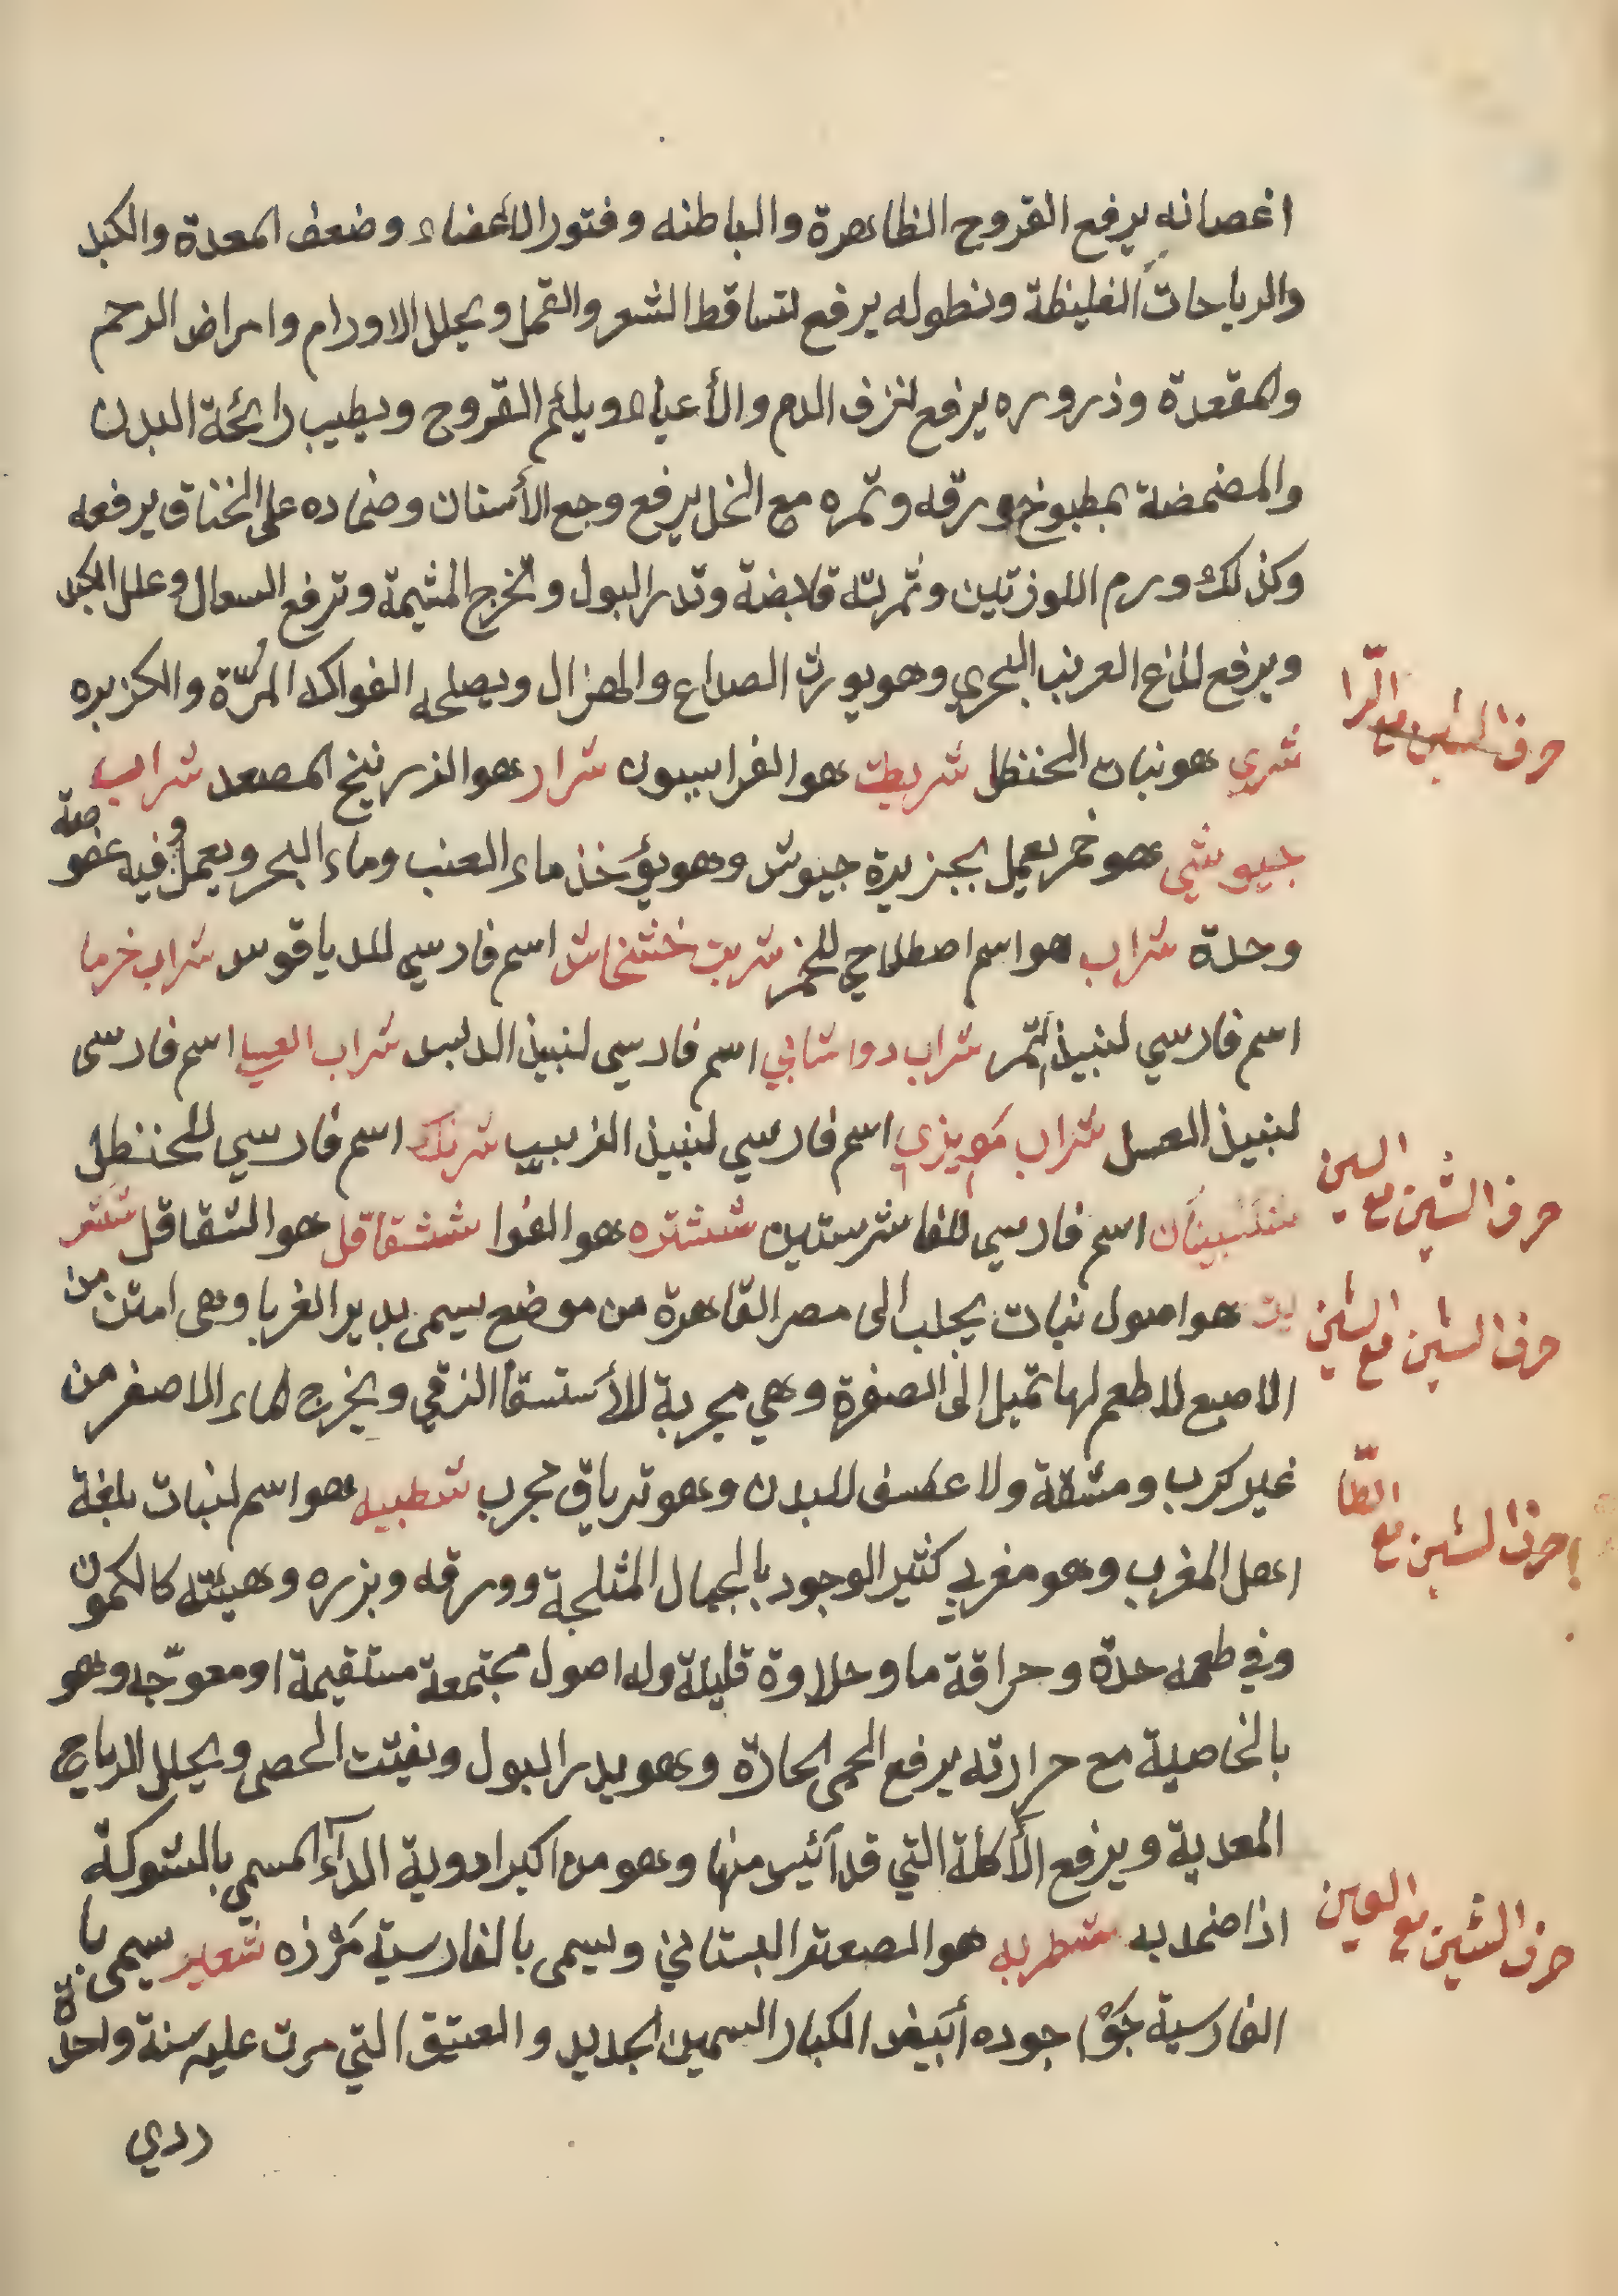 اغصانه يرفع القروح الظاهرة والباطنه وفتور الأعضاء وضعف المعدة والكبد
والرياحات الغليظة ونطوله يرفع لتساقط الشعر والقمل ويحلل الاورام وامراض الرحم
والمقعدة وذروره يرفع لنزف الدم والأعياء ويلئم القروح ويطيب رائحة البدن
والمضمضة بمطبوخ ورقه وثمره مع الخل يرفع وجع الأسنان وضماده على الخناق يرفعه
وكذلك ورم اللوزتين وثمرته قلابضة وتدر البول وتخرج المشيمة وترفع السعال وعلل الكبد
ويرفع لذع العرنب البحري وهو يورث الصداع والهزال ويصلحه الفواكه المُرّة والكزبره
حرف الشين مع الرّا
شري هو نبات الحنظل شريطت هو الفراسيون شرار هو الزرنيخ المصعد شراب
جيوشي هو خمر يعمل بجزيرة جيوش وهو يؤخذ ماء العنب وماء البحر ويعمل فيه عفوصة
وحدة شراب هو اسم اصطلاحي للخمر شربت خشخاش اسم فارسي للدياقوس شراب خرما
اسم فارسي لنبيذ التمر شراب دوشابي اسم فارسي لنبيذ الدبس شراب العسا اسم فارسى
لنبيذ العسل شراب مويزي اسم فارسي لنبيذ الزبيب شرنك اسم فارسي للحنظل
حرف الشين مع السين
اسم فارسي للفاشرستين ششتره هو الفوا ششقاقل هو الشقاقل ششتر
حرف الشين مع الشين
يت هو اصول نبات يجلب الى مصر القاهرة من موضع يسمى بدير الغربا وهى امتن من
الاصبع لا طعم لها تميل الى الصفرة وهي مجربة للأستسقا الزقي ويخرج الماء الاصفر من
غير كرب ومشقة ولا عسف للبدن وهو ترياق مجرب شطبيه هو اسم لنبات بلغة
حرف الشين مع الطّا
اهل المغرب وهو مغربي كثير الوجود بالجبال المثلجة وورقه وبزره وهيئته كالكمون
وفي طعمه حدة وحراقة ما وحلاوة قليلة وله اصول مجتمعة مستقيمة او معوّجه وهو
بالخاصية مع حرارته يرفع الحمى الحادّة وهو يدر البول ويفتت الحصى ويحلل الرياح
المعدية ويرفع الأكلة التي قد آئيس منها وهو من اكبر ادوية الدآء المسمى بالشوكة
حرف الشين مع العين
اذا ضمد به شطريه هو الصعتر البستاني ويسمى بالفارسية مَرْزه شعير يسمى با
الفارسية جَوْ اجوده أبيض الكبار السمين الجديد والعتيق التي مرت عليه سنة واحدة
ردي